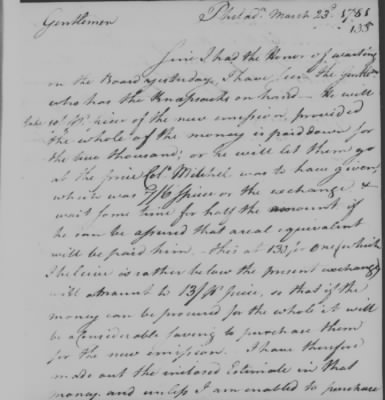 Gentlemen
Philadª. March 23d. 1781
135
Since I had the Honor of waiting
on the Board yesterday, I have seen the Gentlen.
who has the Knapsacks on hand — He will
take 10/ pr. piece of the new emission, provided
the whole of the money is paid down for
the two thousand; or he will let them go
at the price Col. Mitchell was to have given,
which was 7/6 Specie or the exchange &
wait some time for half the amount if
he can be assured that a real equivalent
will be paid him. — this at 130 for One (which
I believe is rather below the present exchange)
will amount to 13/ pr. piece, so that if the
money can be procured for the whole it will
be a Considerable saving to purchase them
for the new emission. I have therefore
made out the inclosed Estimate in that
money. and unless I am enabled to purchase